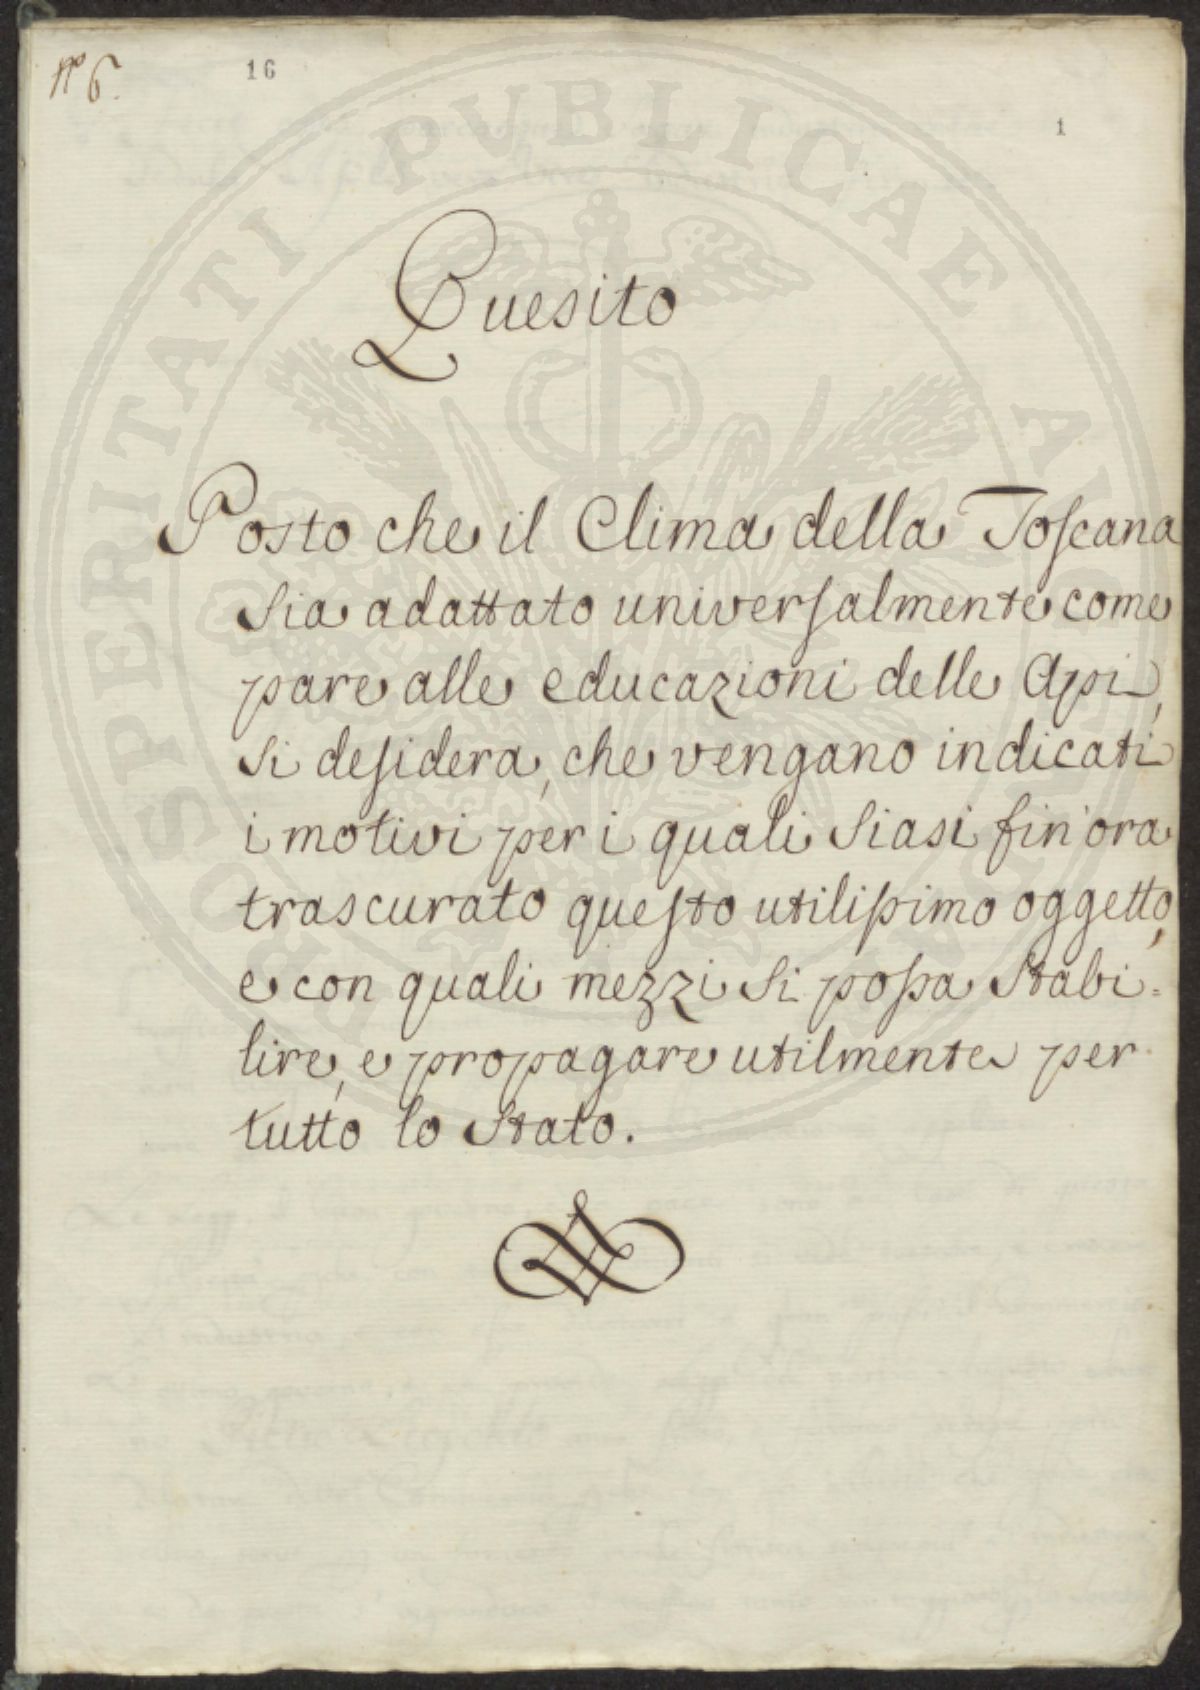 N° 6.
16
1
PROSPERITATI PUBLICAE AUGENDAE
Quesito
Posto che il Clima della Toſcana
sia adattato univerſalmente come
pare alle educazioni delle Api,
si deſidera, che vengano indicati
i motivi per i quali siasi fin'ora
trascurato queſto utiliſsimo oggetto,
e con quali mezzi si poſsa stabi=
lire, e propagare utilmente per
tutto lo stato.